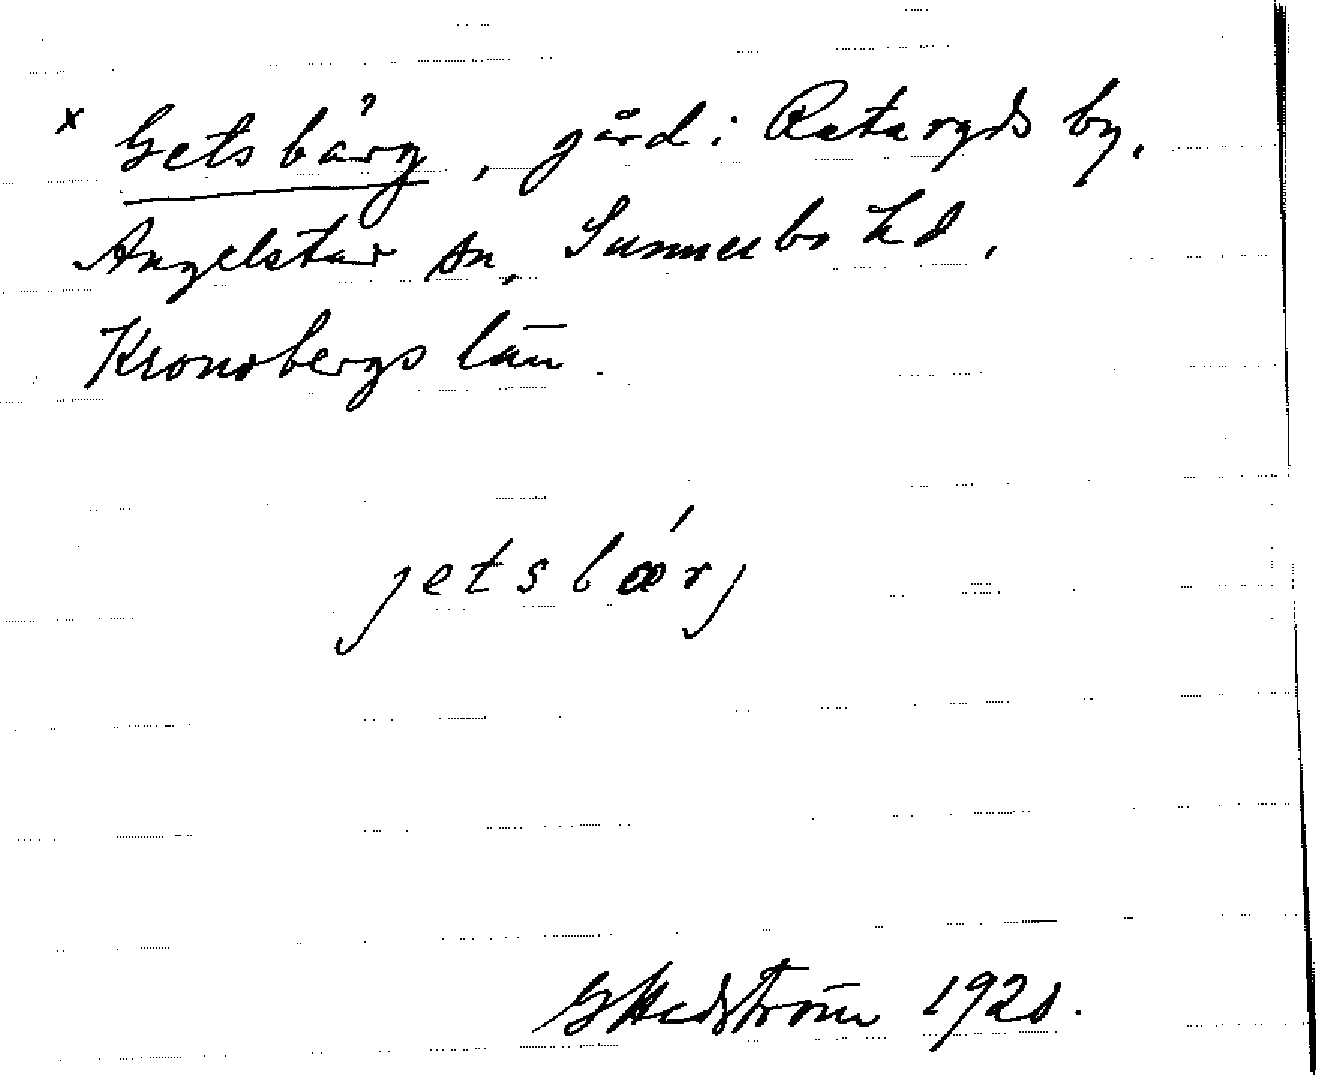 x Getsbärg, gård i Rataryds by,
Angelstad sn, Sunnerbo hd,
Kronobergs län.
jetsbærj
G Hedström 1920.